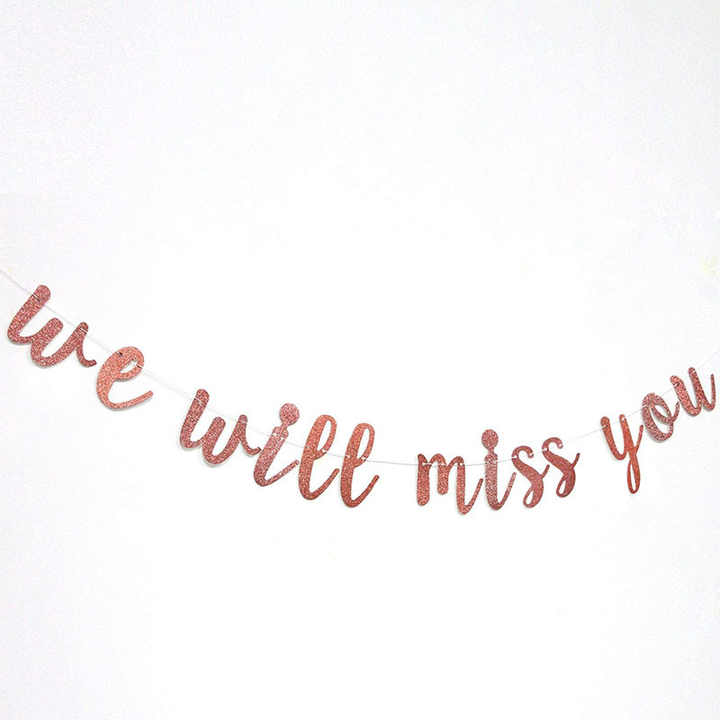 we will miss you